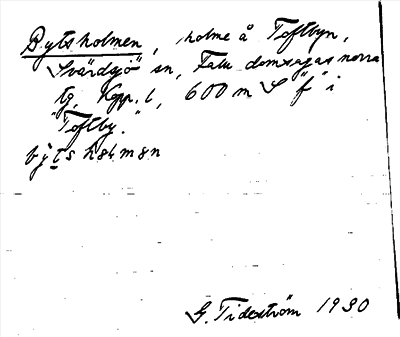 Bytsholmen, holme å Toftbyn,
Svärdsjö sn, Falu domsagas norra
tg, Kopp. l, 600 m S "f" i
"Toftby."
bỳtshɷlmən
G. Tideström 1930